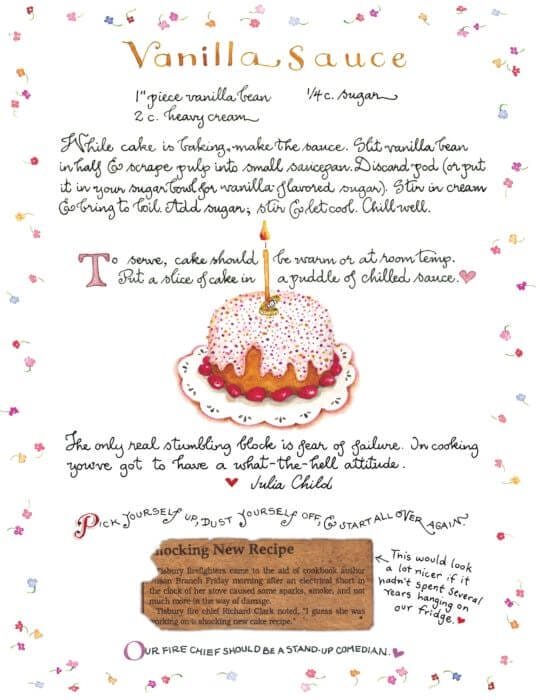 Vanilla Sauce
1" piece vanilla bean 1/4 c. sugar
2 c. heavy cream
While cake is baking, make the sauce. Slit vanilla bean
in half & scrape pulp into small saucepan. Discard pod (or put
it in your sugar bowl for vanilla-flavored sugar). Stir in cream
& bring to boil. Add sugar; stir & let cool. Chill well.
To serve, cake should be warm or at room temp.
Put a slice of cake in a puddle of chilled sauce.
The only real stumbling block is fear of failure. In cooking
you've got to have a what-the-hell attitude.
Julia Child
PICK YOURSELF UP, DUST YOURSELF OFF, & START ALL OVER AGAIN.
hocking New Recipe
isbury firefighters came to the aid of cookbook author
usan Branch Friday morning after an electrical short in
the clock of her stove caused some sparks, smoke, and not
much more in the way of damage.
Tisbury fire chief Richard Clark noted, "I guess she was
working on a shocking new cake recipe."
This would look
a lot nicer if it
hadn't spent several
years hanging on
our fridge.
OUR FIRE CHIEF SHOULD BE A STAND-UP COMEDIAN.